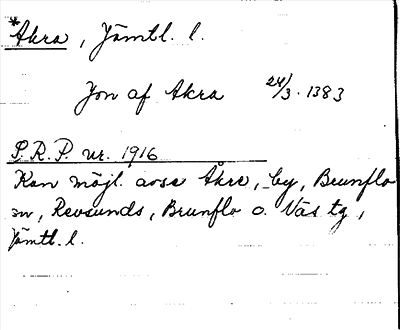 *Akra, Jämtl. l.
Jon af Akra 24/3 1383
P.R.P. nr. 1916
Kan möjl. avse Åkre, by, Brunflo
sn, Revsunds, Brunflo o. Näs tg,
Jämtl. l.